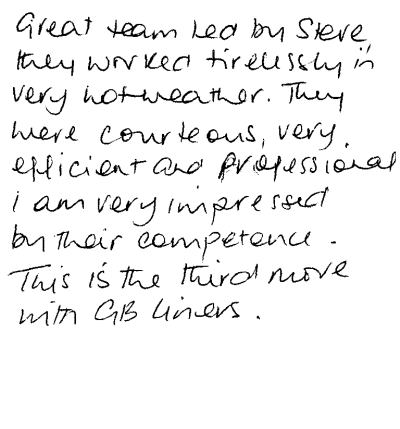 Great team led by Steve,
they worked tirelessly in
very hot weather. They
were courteous, very
efficient and professional
i am very impressed
by their competence.
This is the third move
with GB Liners.